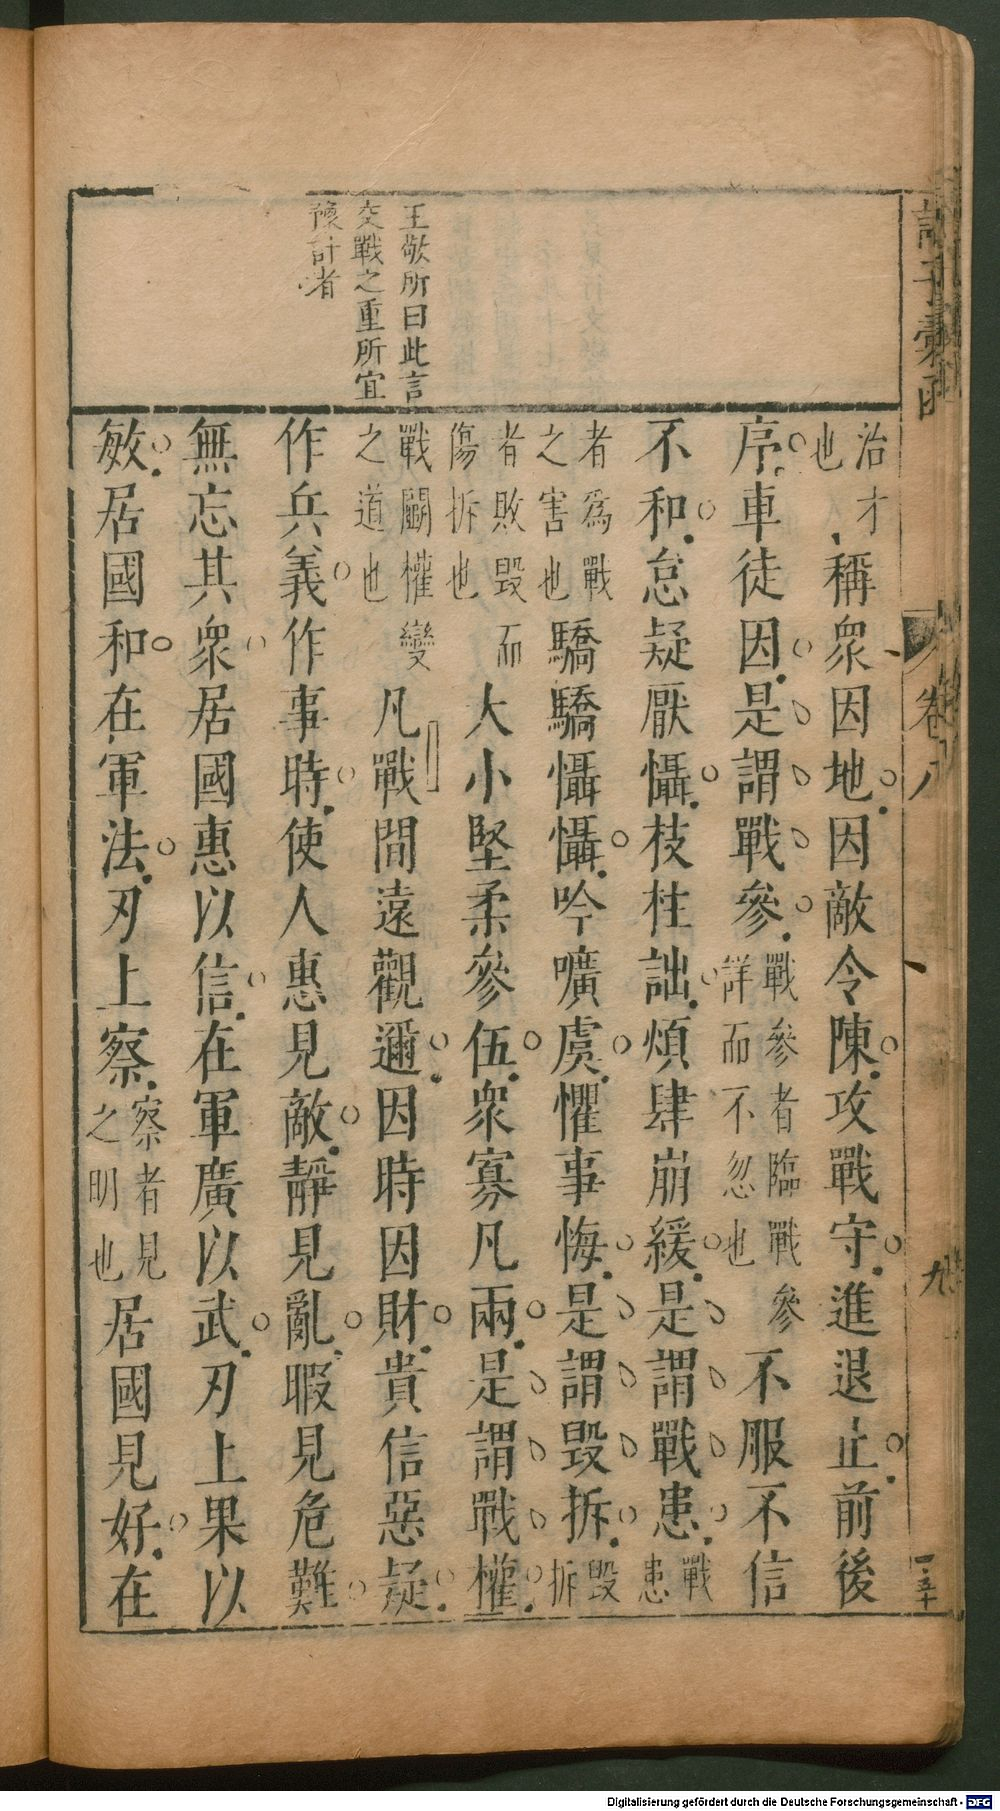 王敬所曰此言
交戰之重所宜
豫計者
治才
也
稱衆因地因敵令陳攻戰守進退止前後
序車徒因是謂戰參
戰參者臨戰參
詳而不忽也
不服不信
不和怠疑厭懾枝柱詘煩肆崩緩是謂戰患
戰
患
者爲戰
之害也
驕驕懾懾吟嚝虞懼事悔是謂毀拆
毀
拆
者敗毀而
傷拆也
大小堅柔參伍衆寡凡兩是謂戰權
戰鬬權變
之道也
凡戰間遠觀邇因時因財貴信惡疑
作兵義作事時使人惠見敵靜見亂暇見危難
無忘其衆居國惠以信在軍廣以武刃上果以
敏居國和在軍法刃上察
察者見
之明也
居國見好在
卷八
九
Digitalisierung gefördert durch die Deutsche Forschungsgemeinschaft - DFG